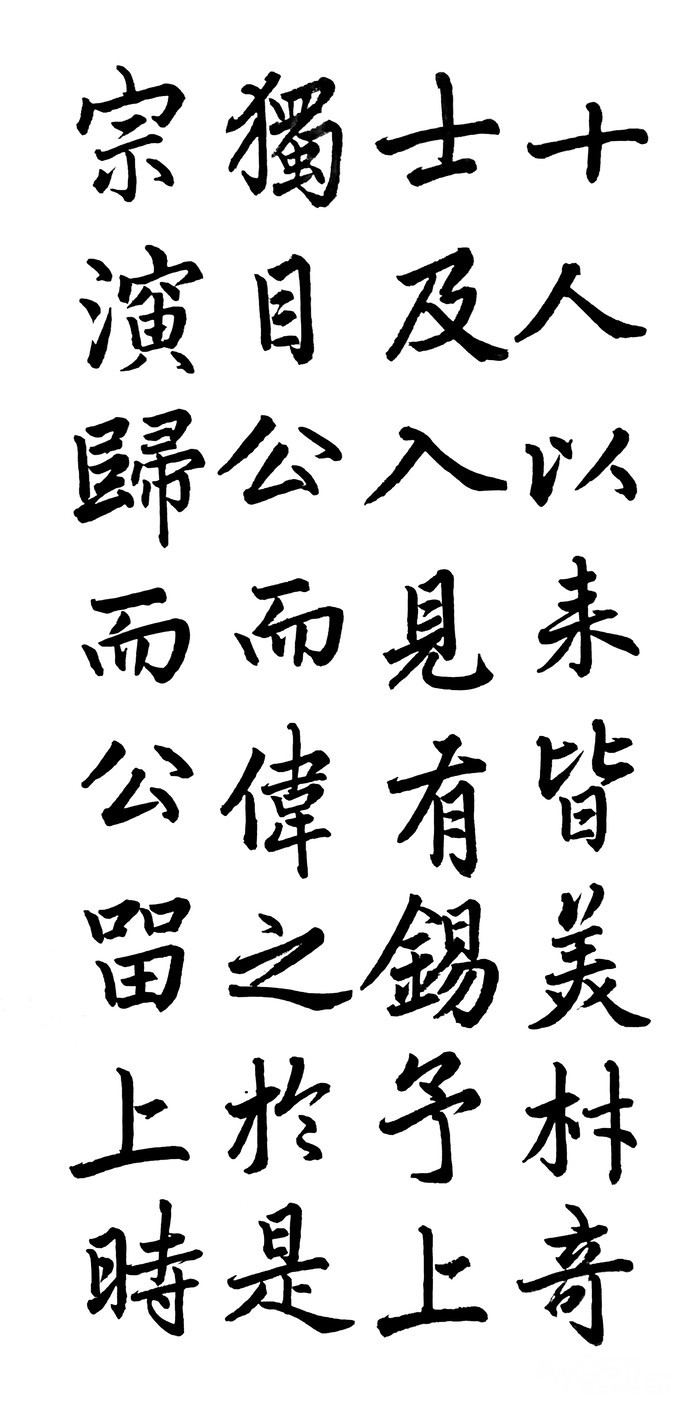 十人以来皆美材奇
士及入見有錫予上
獨目公而偉之於是
宗演歸而公留上時